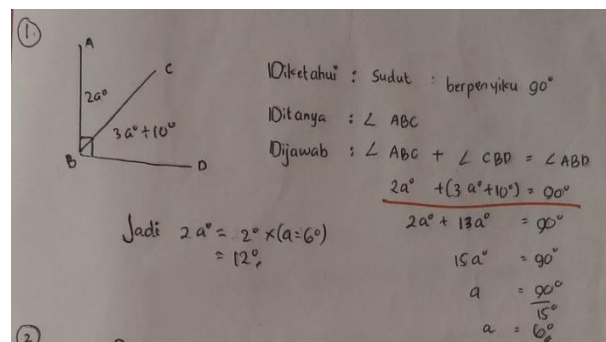 1.
A
C
2a°
3a°+10°
B
D
Diketahui : Sudut : berpenyiku 90°
Ditanya : ∠ ABC
Dijawab : ∠ ABC + ∠ CBD = ∠ ABD
2a° + (3a°+10°) = 90°
2a° + 13a° = 90°
15a° = 90°
a = 90°
15°
a = 6°
Jadi 2a° = 2° × (a=6°)
= 12°
2